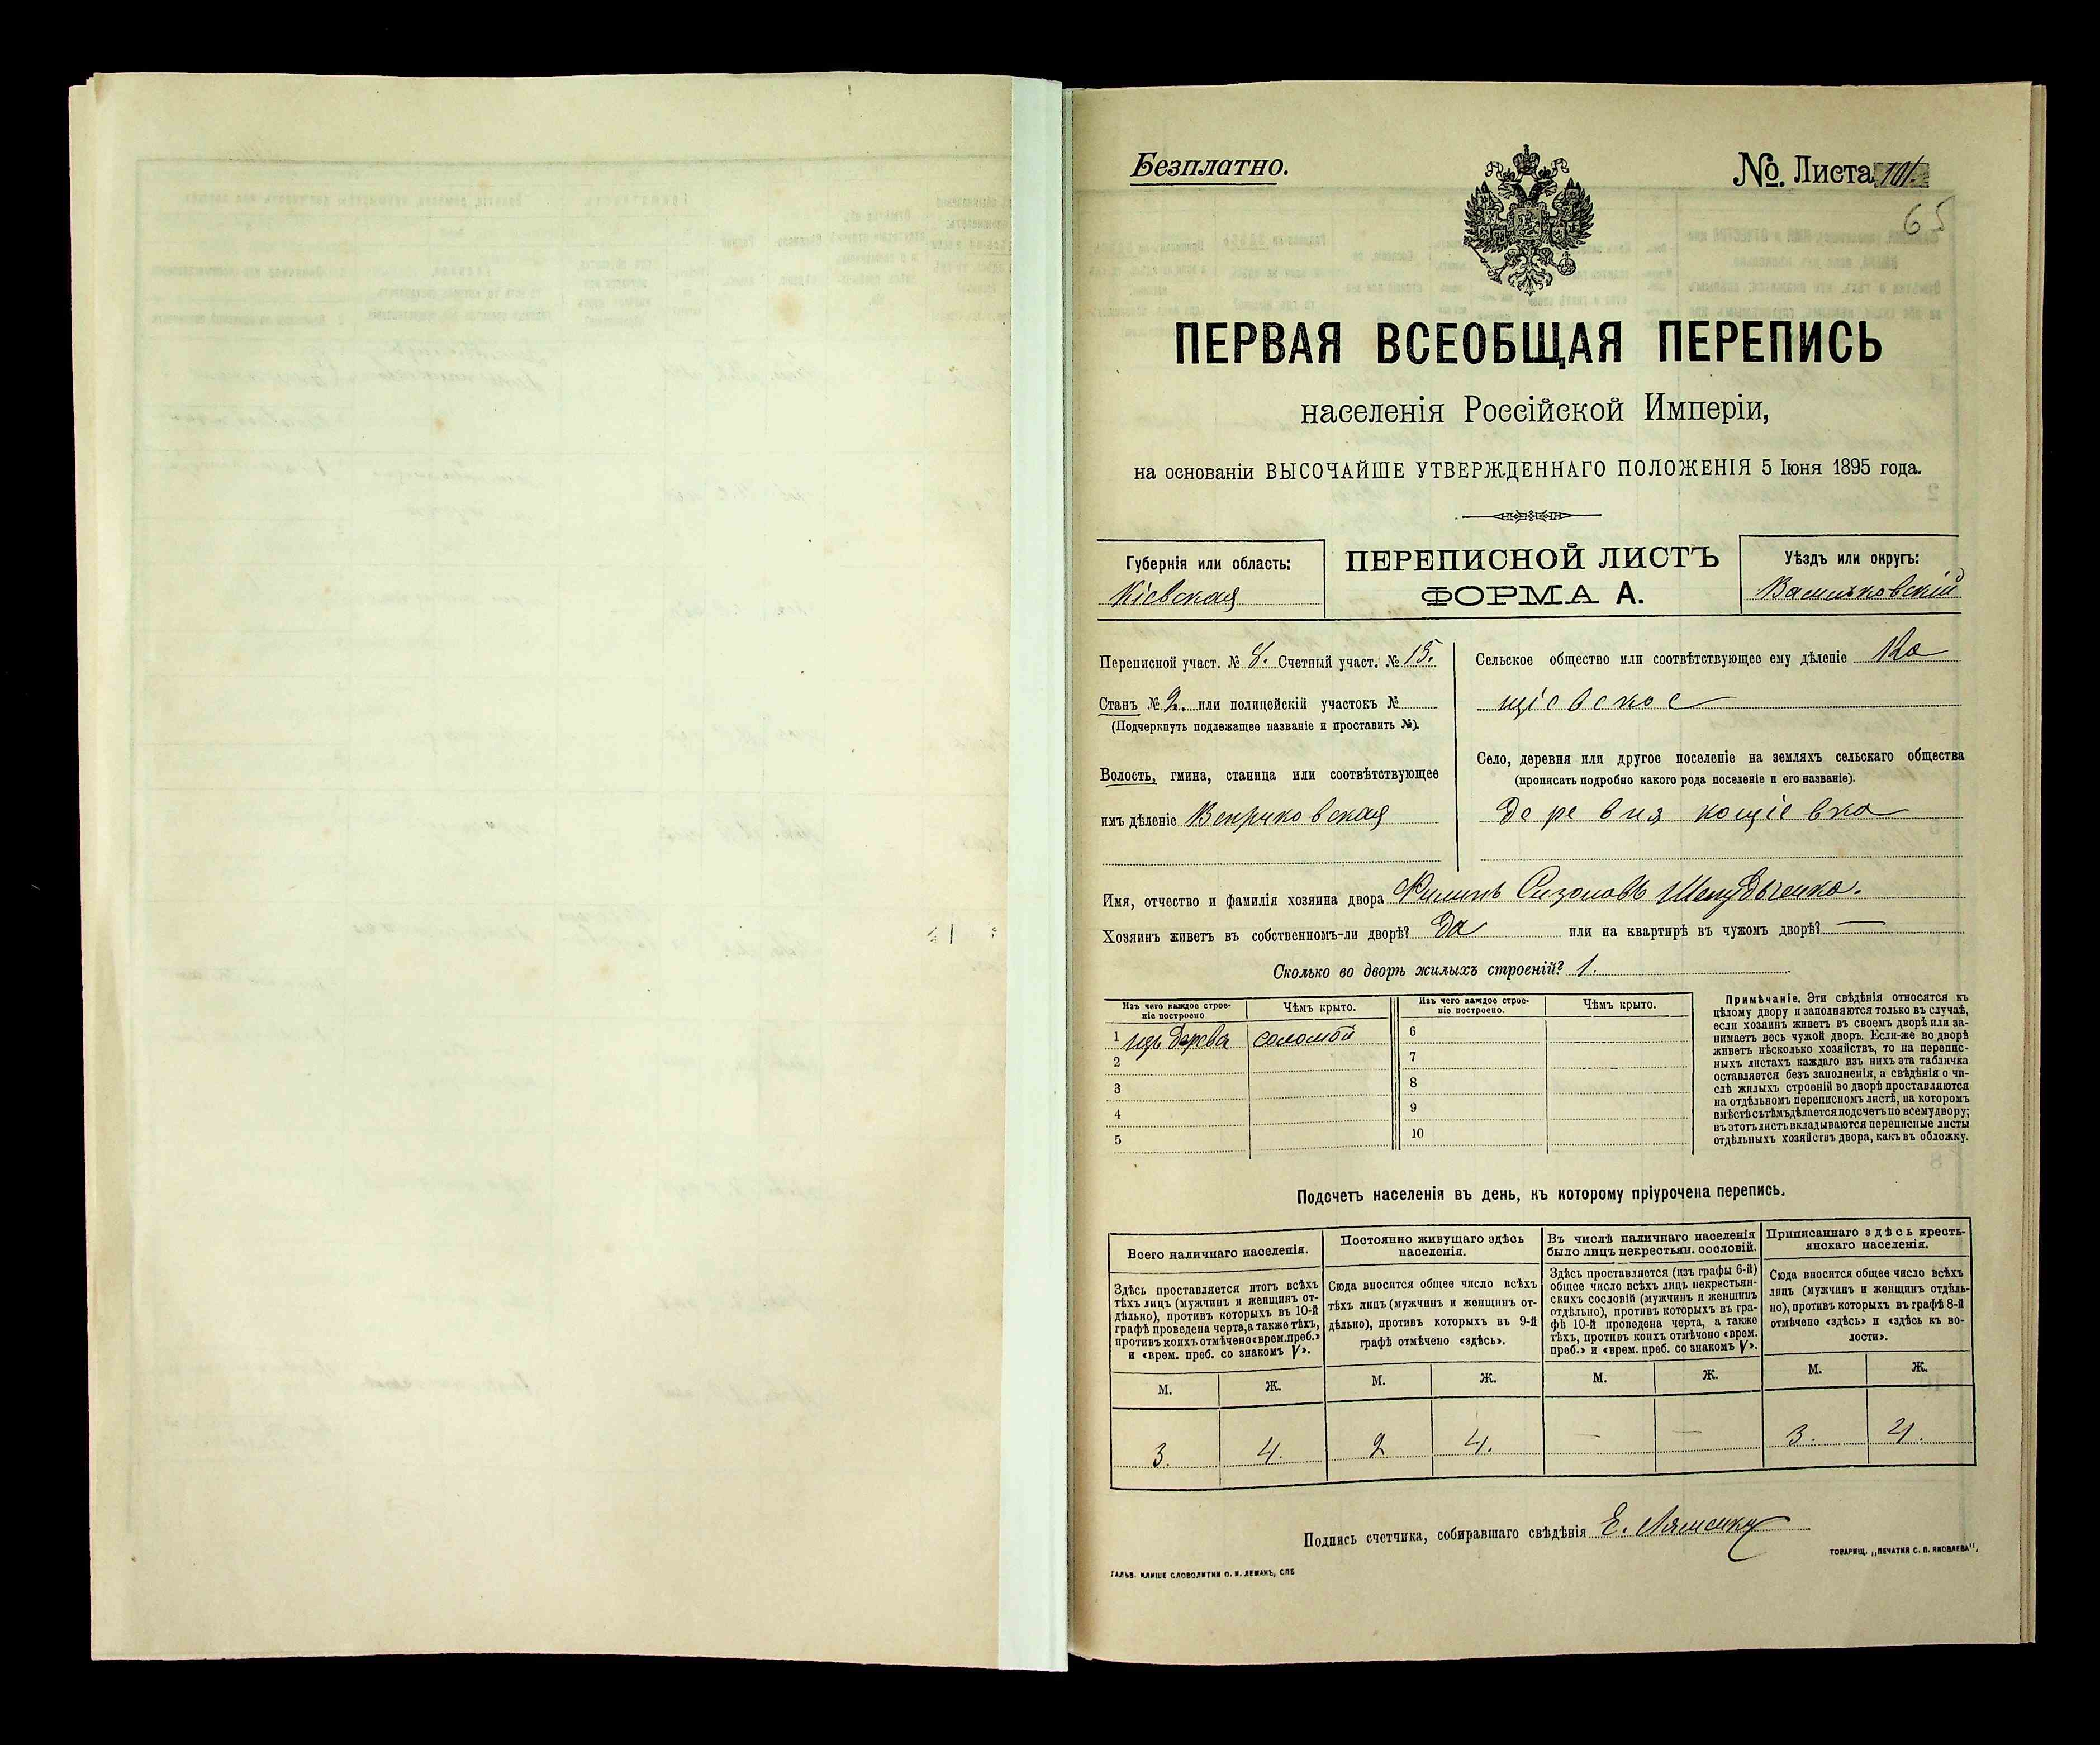 Безплатно.
№ Листа 101.
65
ПЕРВАЯ ВСЕОБЩАЯ ПЕРЕПИСЬ
населенія Россійской Имперіи,
на основаніи ВЫСОЧАЙШЕ УТВЕРЖДЕННАГО ПОЛОЖЕНІЯ 5 Іюня 1895 года.
Губернія или область:
Кіевская
ПЕРЕПИСНОЙ ЛИСТЪ
ФОРМА А.
Уѣздъ или округъ:
Васильковскій
Переписной участ. № 8. Счетный участ. № 15.
Станъ № 2. или полицейскій участокъ №
(Подчеркнуть подлежащее названіе и проставить №).
Волость, гмина, станица или соотвѣтствующее
имъ дѣленіе Веприковская
Сельское общество или соотвѣтствующее ему дѣленіе Ко
щіевское
Село, деревня или другое поселеніе на земляхъ сельскаго общества
(прописать подробно какого рода поселеніе и его названіе).
Деревня кощіевка
Имя, отчество и фамилія хозяина двора Филипъ Сизоновъ
Хозяинъ живетъ въ собственномъ-ли дворѣ? Да или на квартирѣ въ чужомъ дворѣ? —
Сколько во дворѣ жилыхъ строеній? 1.
Изъ чего каждое строе-
ніе построено
Чѣмъ крыто.
Изъ чего каждое строе-
ніе построено.
Чѣмъ крыто.
1 изъ дерева соломой
2
3
4
5
6
7
8
9
10
Примѣчаніе. Эти свѣдѣнія относятся къ
цѣлому двору и заполняются только въ случаѣ,
если хозяинъ живетъ въ своемъ дворѣ или за-
нимаетъ весь чужой дворъ. Если-же во дворѣ
живетъ нѣсколько хозяйствъ, то на перепис-
ныхъ листахъ каждаго изъ нихъ эта табличка
оставляется безъ заполненія, а свѣдѣнія о чи-
слѣ жилыхъ строеній во дворѣ проставляются
на отдѣльномъ переписномъ листѣ, на которомъ
вмѣстѣ съ тѣмъ дѣлается подсчетъ по всему двору;
въ этотъ листъ вкладываются переписные листы
отдѣльныхъ хозяйствъ двора, какъ въ обложку.
Подсчетъ населенія въ день, къ которому пріурочена перепись.
Всего наличнаго населенія.
Здѣсь проставляется итогъ всѣхъ
тѣхъ лицъ (мужчинъ и женщинъ от-
дѣльно), противъ которыхъ въ 10-й
графѣ проведена черта, а также тѣхъ,
противъ коихъ отмѣчено «врем. преб.»
и «врем. преб. со знакомъ V».
Постоянно живущаго здѣсь
населенія.
Сюда вносится общее число всѣхъ
тѣхъ лицъ (мужчинъ и женщинъ от-
дѣльно), противъ которыхъ въ 9-й
графѣ отмѣчено «здѣсь».
Въ числѣ наличнаго населенія
было лицъ некрестьян. сословій.
Здѣсь проставляется (изъ графы 6-й)
общее число всѣхъ лицъ некрестьян-
скихъ сословій (мужчинъ и женщинъ
отдѣльно), противъ которыхъ въ гра-
фѣ 10-й проведена черта, а также
тѣхъ, противъ коихъ отмѣчено «врем.
преб.» и «врем. преб. со знакомъ V».
Приписаннаго здѣсь кресть-
янскаго населенія.
Сюда вносится общее число всѣхъ
лицъ (мужчинъ и женщинъ отдѣль-
но), противъ которыхъ въ графѣ 8-й
отмѣчено «здѣсь» и «здѣсь къ во-
лости».
М. Ж. М. Ж. М. Ж. М. Ж.
3. 4. 2 4. — — 3. 4.
Подпись счетчика, собиравшаго свѣдѣнія Е.
ТОВАРИЩ. „ПЕЧАТНЯ С. П. ЯКОВЛЕВА“.
ГАЛЬВ. КЛИШЕ СЛОВОЛИТНИ О. И. ЛЕМАНЪ, СПБ